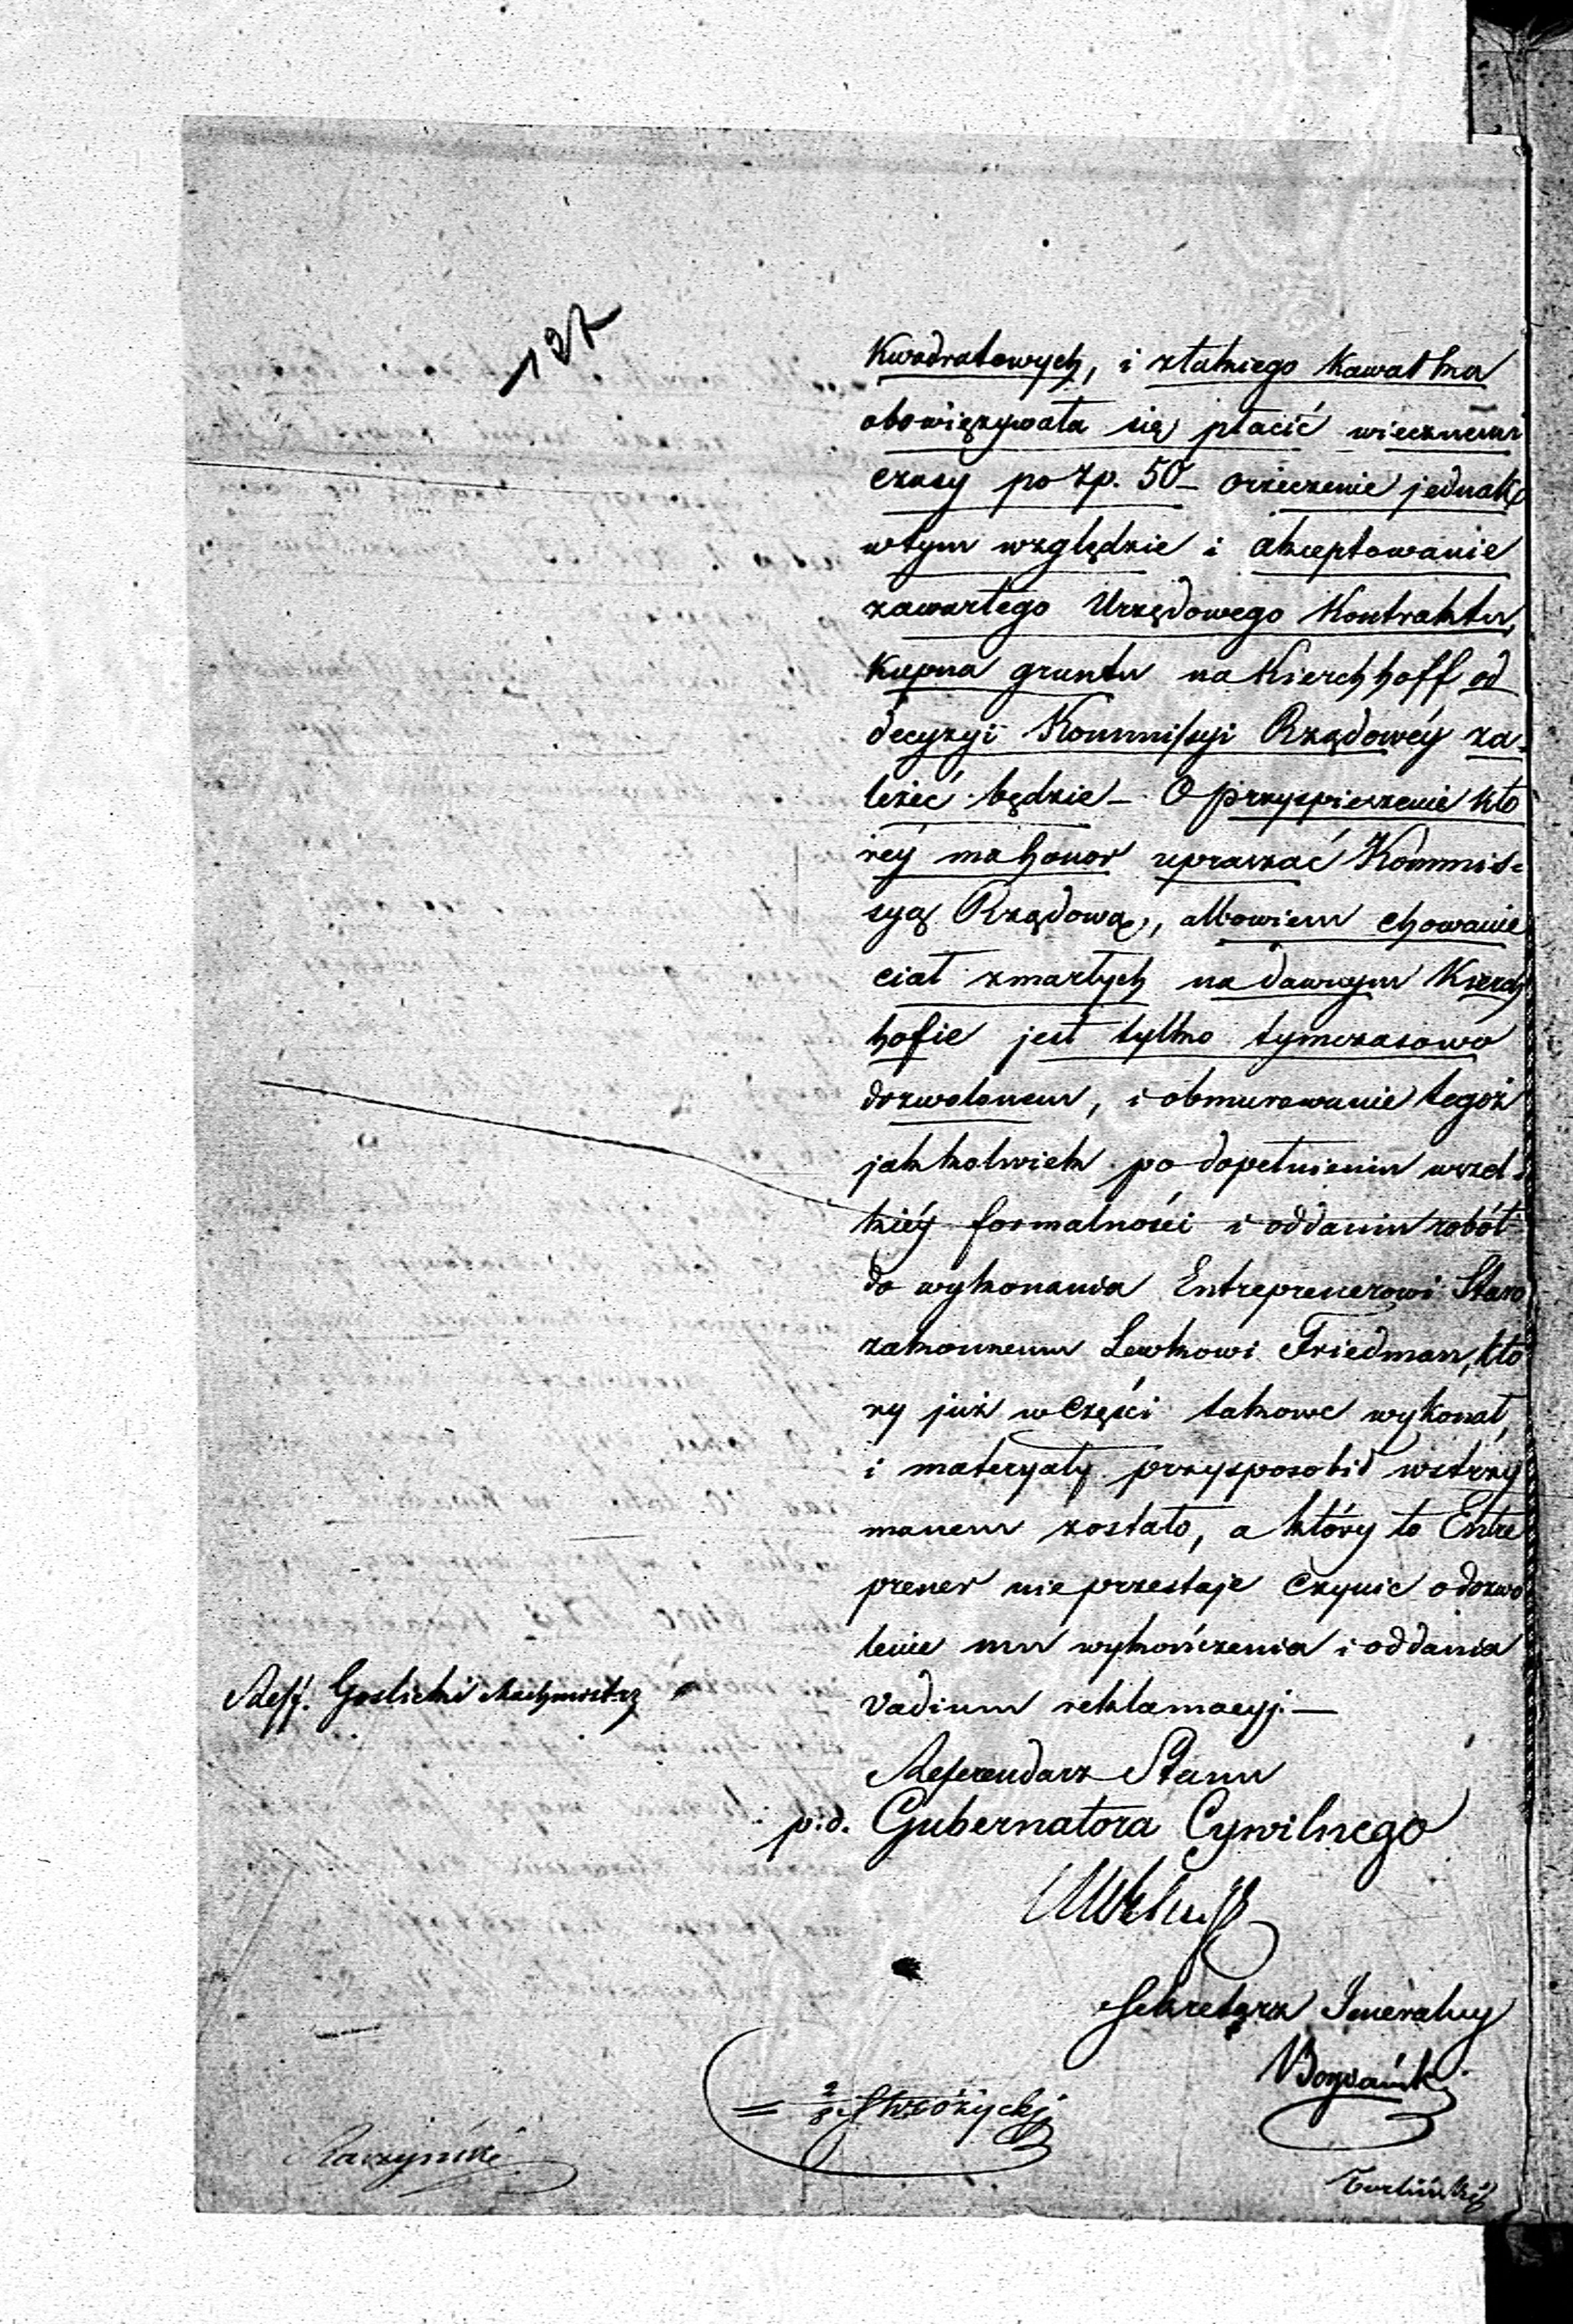 127
Kwadratowych, i złakiego kawałka
obowięzywała się płacić wiecznemi
czasy po Zp. 50 – orzeczenie jednak
w tym względzie i akceptowanie
zawartego Urzędowego Kontraktu
Kupna gruntu na Kierchhoff od
decyzyi Kommissyi Rządowéy za-
leżéć będzie – O przyspieszenie któ
réy ma honor upraszać Kommis-
syą Rządową, albowiem chowanie
ciał zmarłych na dawnym Kierch
hofie jest tylko tymczasowo
dozwolonem, i obmurowanie tegoż
jakkolwiek po dopełnieniu wszel-
kiéy formalności i oddaniu robót
do wykonania Entreprenerowi Staro
zakonnemu Lewkowi Friedman, któ
ry już w części takowe wykonał,
i materyały przysposobił wstrzy
manem zostało, a który to Entre
prener nie przestaje czynić o dozwo
lenie mu wykończenia i oddania
Vadium reklamacyj. —
Reff. Goslicki
Referendarz Stanu
p.o. Gubernatora Cywilnego
Sekretarz Jeneralny
Raczyński